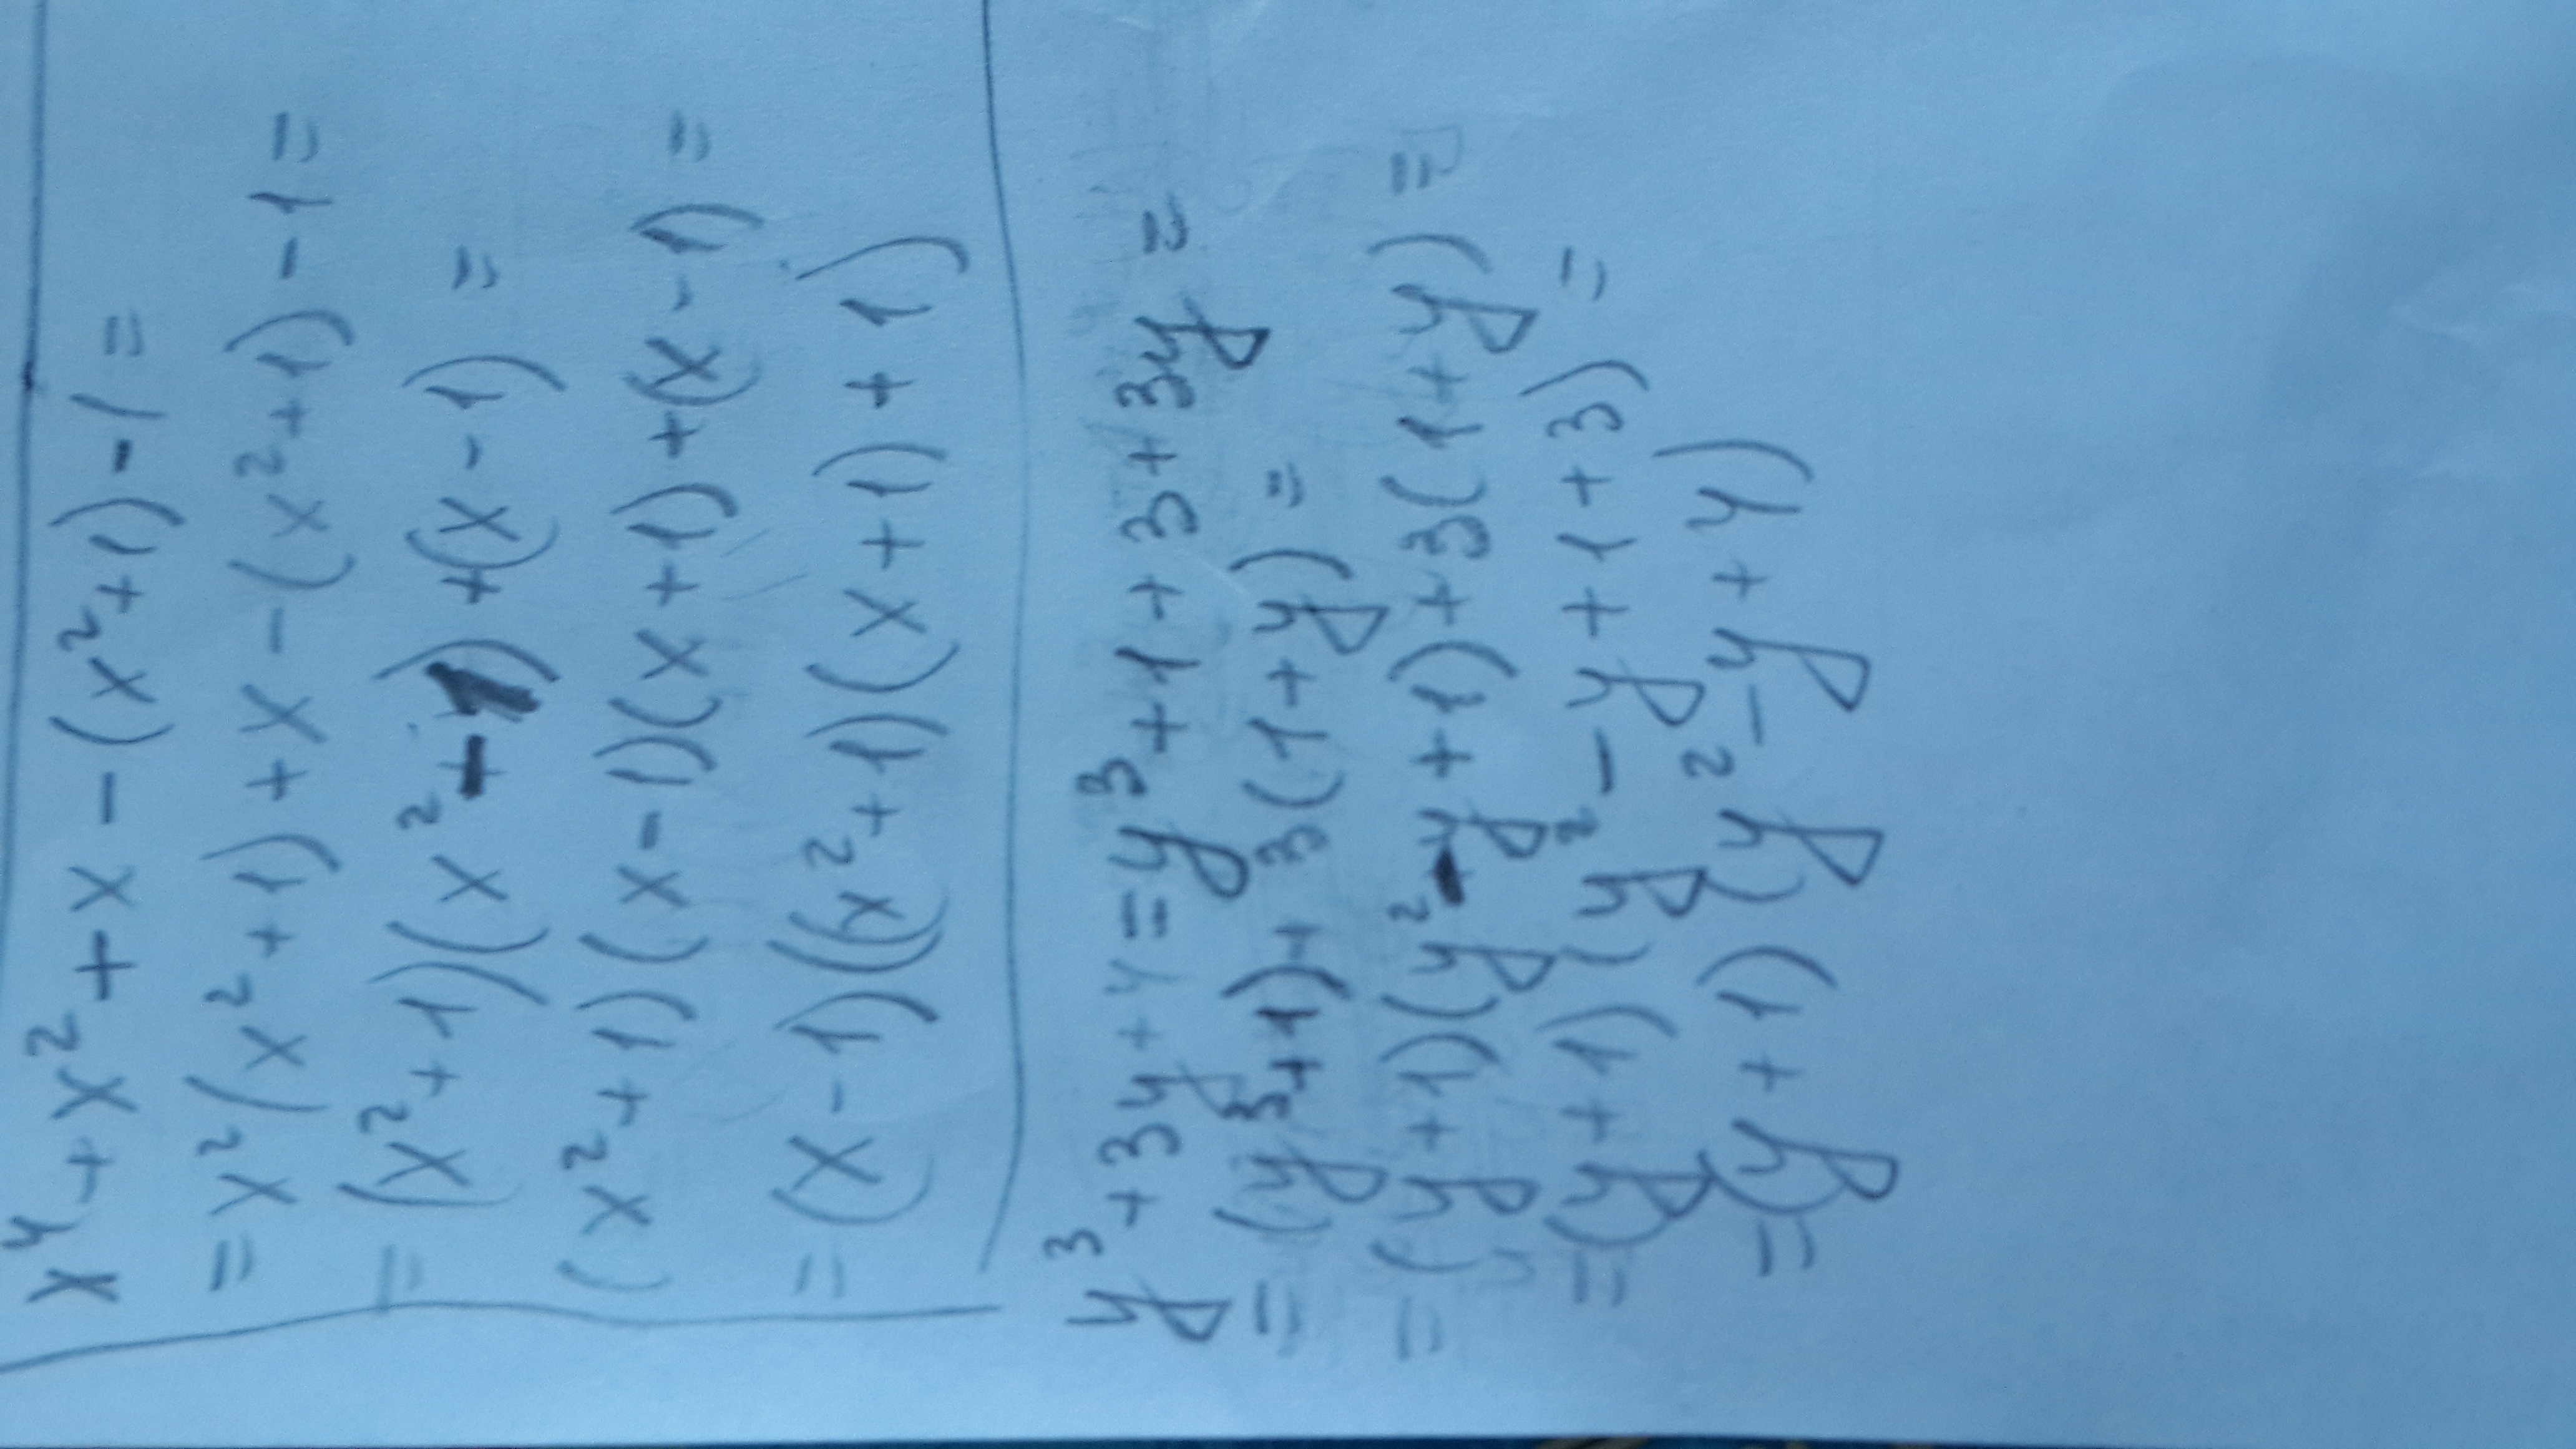 x⁴ + x² + x - (x² + 1) - 1 =
= x²(x² + 1) + x - (x² + 1) - 1 =
= (x² + 1)(x² - 1) + (x - 1) =
(x² + 1)(x - 1)(x + 1) + (x - 1) =
= (x - 1)((x² + 1)(x + 1) + 1)
y³ + 3y + 4 = y³ + 1 + 3 + 3y =
= (y³ + 1) + 3(1 + y) =
= (y + 1)(y² - y + 1) + 3(1 + y) =
= (y + 1)(y² - y + 1 + 3) =
= (y + 1)(y² - y + 4)